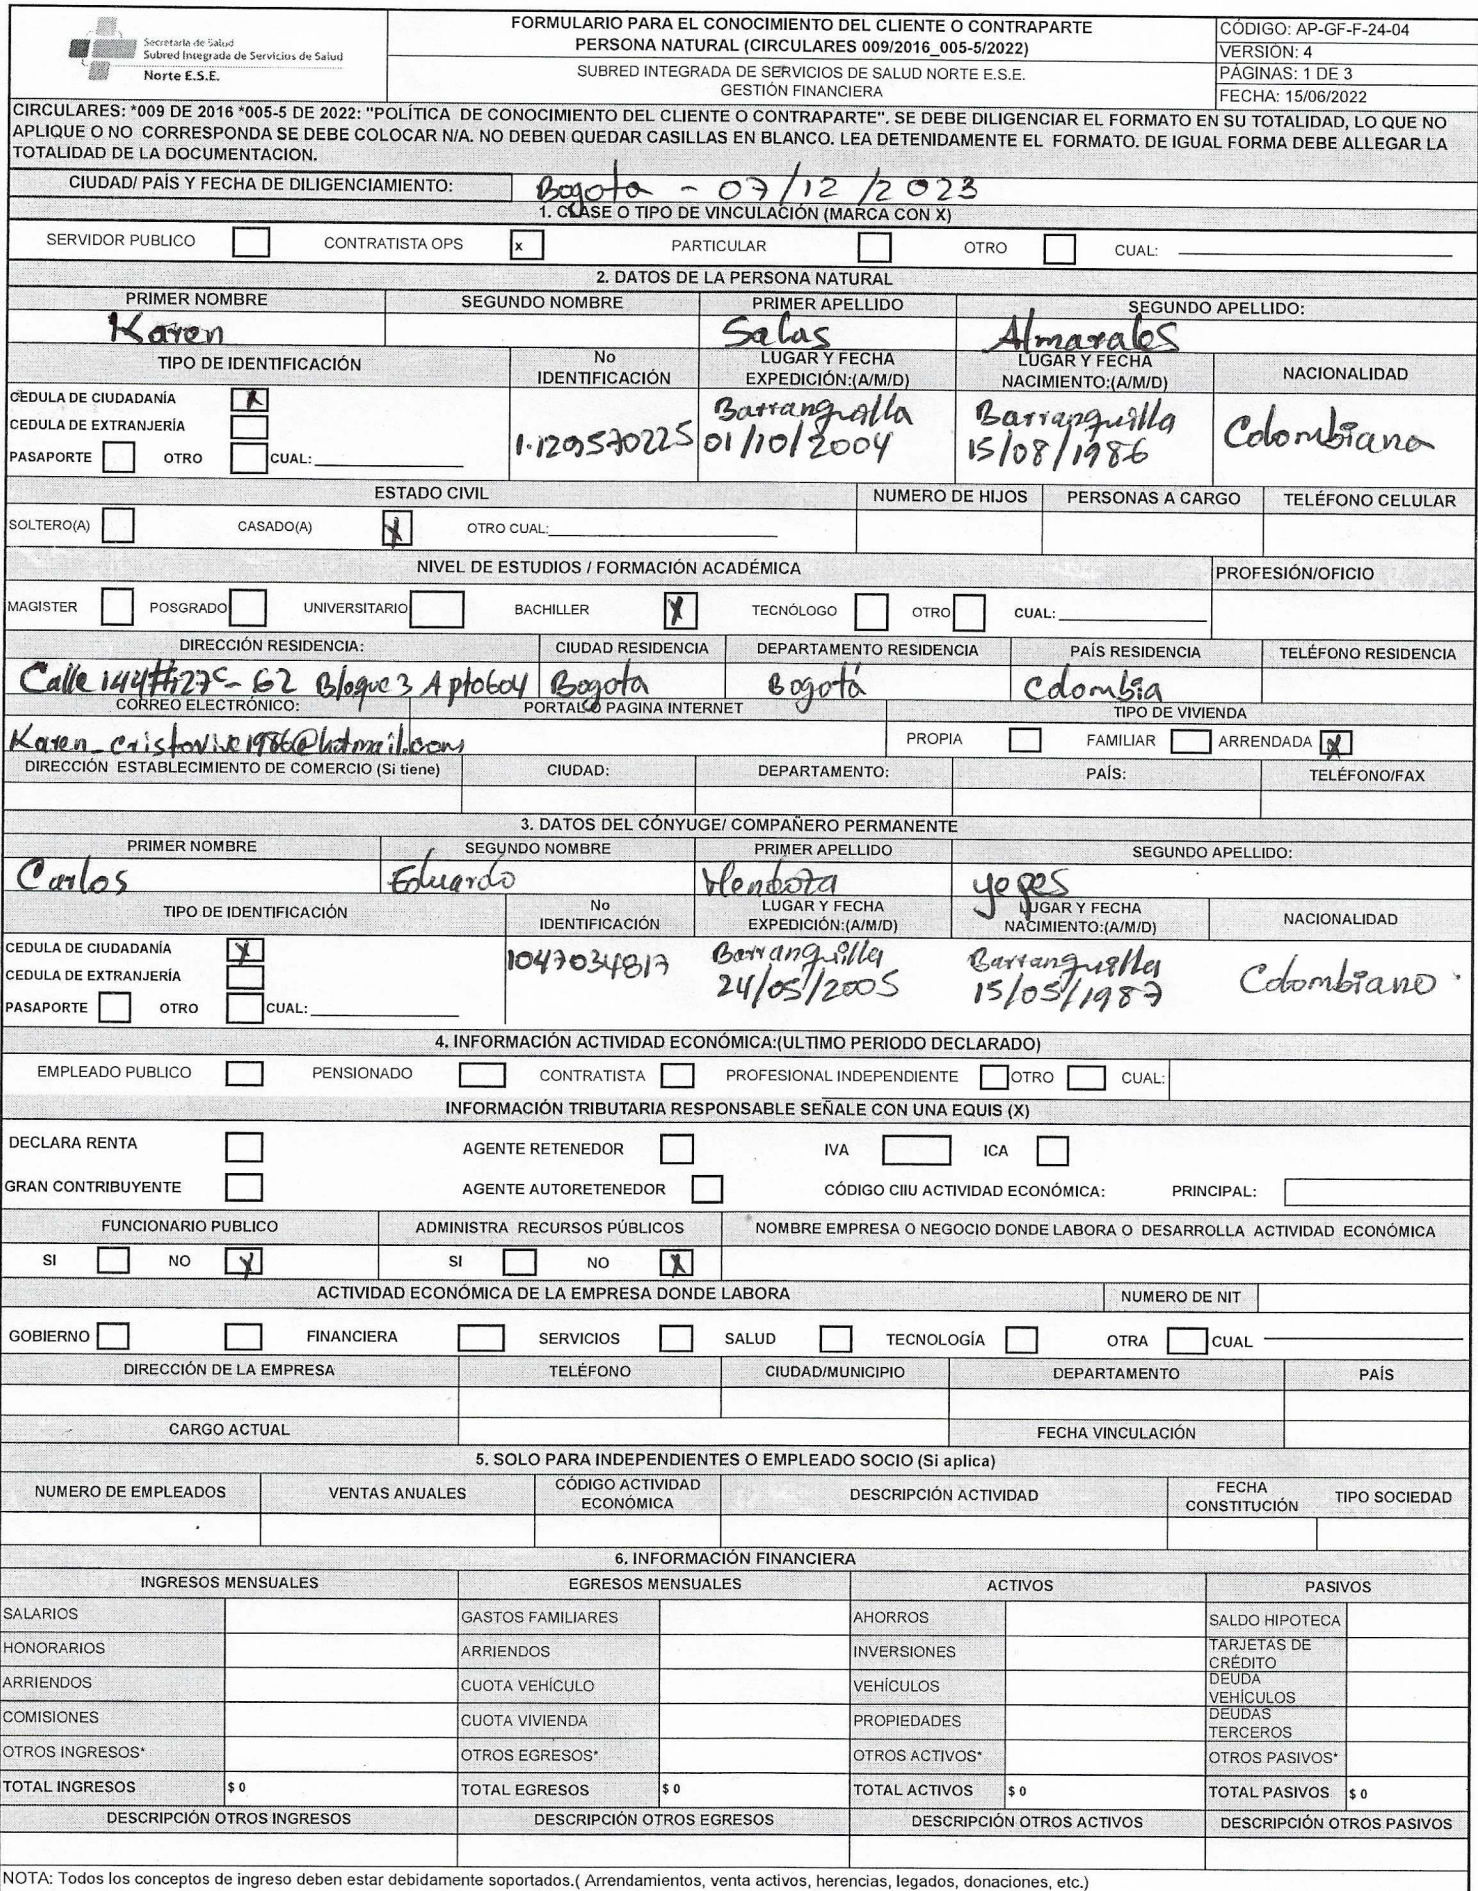 Secretaría de Salud
Subred Integrada de Servicios de Salud
Norte E.S.E.
FORMULARIO PARA EL CONOCIMIENTO DEL CLIENTE O CONTRAPARTE
PERSONA NATURAL (CIRCULARES 009/2016_005-5/2022)
SUBRED INTEGRADA DE SERVICIOS DE SALUD NORTE E.S.E.
GESTIÓN FINANCIERA
CÓDIGO: AP-GF-F-24-04
VERSIÓN: 4
PÁGINAS: 1 DE 3
FECHA: 15/06/2022
CIRCULARES: *009 DE 2016 *005-5 DE 2022: "POLÍTICA DE CONOCIMIENTO DEL CLIENTE O CONTRAPARTE". SE DEBE DILIGENCIAR EL FORMATO EN SU TOTALIDAD, LO QUE NO
APLIQUE O NO CORRESPONDA SE DEBE COLOCAR N/A. NO DEBEN QUEDAR CASILLAS EN BLANCO. LEA DETENIDAMENTE EL FORMATO. DE IGUAL FORMA DEBE ALLEGAR LA
TOTALIDAD DE LA DOCUMENTACION.
CIUDAD/ PAÍS Y FECHA DE DILIGENCIAMIENTO: Bogota - 07/12/2023
1. CLASE O TIPO DE VINCULACIÓN (MARCA CON X)
SERVIDOR PUBLICO CONTRATISTA OPS x PARTICULAR OTRO CUAL:
2. DATOS DE LA PERSONA NATURAL
PRIMER NOMBRE SEGUNDO NOMBRE PRIMER APELLIDO SEGUNDO APELLIDO:
Karen Salas Almarales
TIPO DE IDENTIFICACIÓN No IDENTIFICACIÓN LUGAR Y FECHA EXPEDICIÓN:(A/M/D) LUGAR Y FECHA NACIMIENTO:(A/M/D) NACIONALIDAD
CEDULA DE CIUDADANÍA X
CEDULA DE EXTRANJERÍA
PASAPORTE OTRO CUAL:
1.129570225 Barranquilla 01/10/2004 Barranquilla 15/08/1986 Colombiana
ESTADO CIVIL NUMERO DE HIJOS PERSONAS A CARGO TELÉFONO CELULAR
SOLTERO(A) CASADO(A) X OTRO CUAL:
NIVEL DE ESTUDIOS / FORMACIÓN ACADÉMICA PROFESIÓN/OFICIO
MAGISTER POSGRADO UNIVERSITARIO BACHILLER X TECNÓLOGO OTRO CUAL:
DIRECCIÓN RESIDENCIA: CIUDAD RESIDENCIA DEPARTAMENTO RESIDENCIA PAÍS RESIDENCIA TELÉFONO RESIDENCIA
Calle 144#127C- 62 Bloque 3 Apto604 Bogota Bogotá Colombia
CORREO ELECTRÓNICO: PORTAL O PAGINA INTERNET TIPO DE VIVIENDA
Karen_cristovive1986@hotmail.com PROPIA FAMILIAR ARRENDADA X
DIRECCIÓN ESTABLECIMIENTO DE COMERCIO (Si tiene) CIUDAD: DEPARTAMENTO: PAÍS: TELÉFONO/FAX
3. DATOS DEL CÓNYUGE/ COMPAÑERO PERMANENTE
PRIMER NOMBRE SEGUNDO NOMBRE PRIMER APELLIDO SEGUNDO APELLIDO:
Carlos Eduardo Mendoza yepes
TIPO DE IDENTIFICACIÓN No IDENTIFICACIÓN LUGAR Y FECHA EXPEDICIÓN:(A/M/D) LUGAR Y FECHA NACIMIENTO:(A/M/D) NACIONALIDAD
CEDULA DE CIUDADANÍA X
CEDULA DE EXTRANJERÍA
PASAPORTE OTRO CUAL:
1047034817 Barranquilla 24/05/2005 Barranquilla 15/05/1987 Colombiano
4. INFORMACIÓN ACTIVIDAD ECONÓMICA:(ULTIMO PERIODO DECLARADO)
EMPLEADO PUBLICO PENSIONADO CONTRATISTA PROFESIONAL INDEPENDIENTE OTRO CUAL:
INFORMACIÓN TRIBUTARIA RESPONSABLE SEÑALE CON UNA EQUIS (X)
DECLARA RENTA AGENTE RETENEDOR IVA ICA
GRAN CONTRIBUYENTE AGENTE AUTORETENEDOR CÓDIGO CIIU ACTIVIDAD ECONÓMICA: PRINCIPAL:
FUNCIONARIO PUBLICO ADMINISTRA RECURSOS PÚBLICOS NOMBRE EMPRESA O NEGOCIO DONDE LABORA O DESARROLLA ACTIVIDAD ECONÓMICA
SI NO X SI NO X
ACTIVIDAD ECONÓMICA DE LA EMPRESA DONDE LABORA NUMERO DE NIT
GOBIERNO FINANCIERA SERVICIOS SALUD TECNOLOGÍA OTRA CUAL
DIRECCIÓN DE LA EMPRESA TELÉFONO CIUDAD/MUNICIPIO DEPARTAMENTO PAÍS
CARGO ACTUAL FECHA VINCULACIÓN
5. SOLO PARA INDEPENDIENTES O EMPLEADO SOCIO (Si aplica)
NUMERO DE EMPLEADOS VENTAS ANUALES CÓDIGO ACTIVIDAD ECONÓMICA DESCRIPCIÓN ACTIVIDAD FECHA CONSTITUCIÓN TIPO SOCIEDAD
6. INFORMACIÓN FINANCIERA
INGRESOS MENSUALES EGRESOS MENSUALES ACTIVOS PASIVOS
SALARIOS GASTOS FAMILIARES AHORROS SALDO HIPOTECA
HONORARIOS ARRIENDOS INVERSIONES TARJETAS DE CRÉDITO
ARRIENDOS CUOTA VEHÍCULO VEHÍCULOS DEUDA VEHÍCULOS
COMISIONES CUOTA VIVIENDA PROPIEDADES DEUDAS TERCEROS
OTROS INGRESOS* OTROS EGRESOS* OTROS ACTIVOS* OTROS PASIVOS*
TOTAL INGRESOS $ 0 TOTAL EGRESOS $ 0 TOTAL ACTIVOS $ 0 TOTAL PASIVOS $ 0
DESCRIPCIÓN OTROS INGRESOS DESCRIPCIÓN OTROS EGRESOS DESCRIPCIÓN OTROS ACTIVOS DESCRIPCIÓN OTROS PASIVOS
NOTA: Todos los conceptos de ingreso deben estar debidamente soportados.( Arrendamientos, venta activos, herencias, legados, donaciones, etc.)